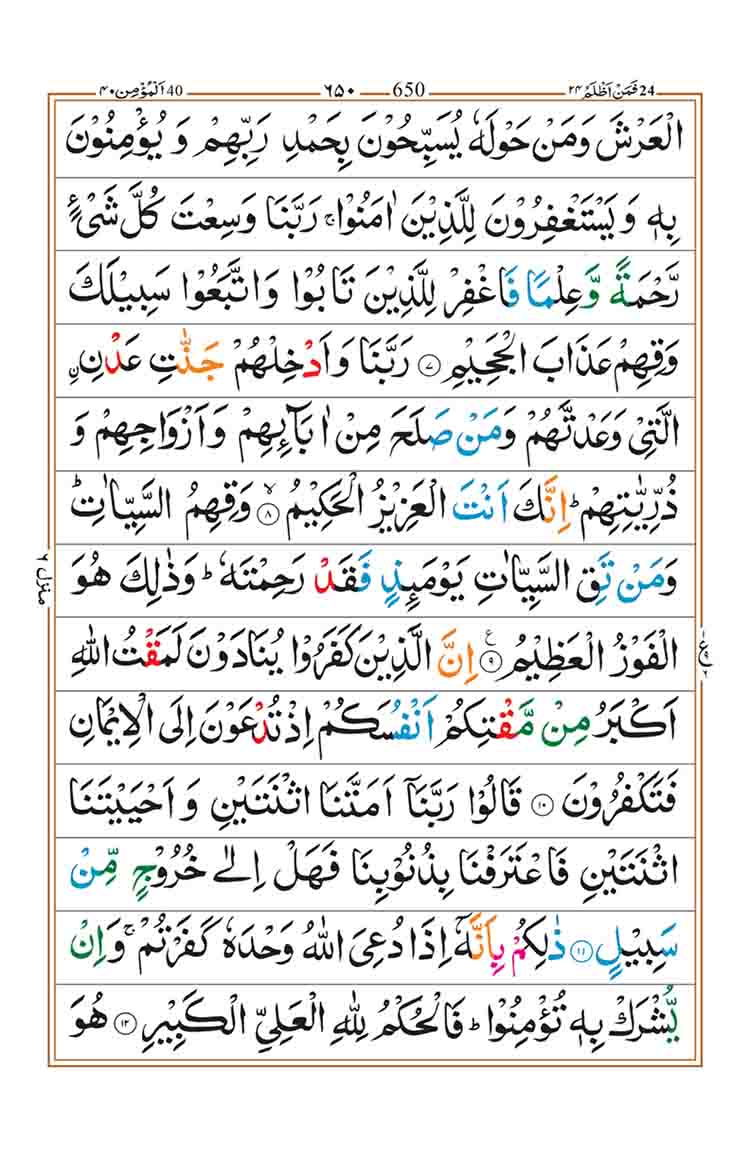 24 فَمَنْ اَظْلَمُ ۲۴ 650 ۶۵۰ 40 اَلْمُؤْمِن ۴۰
الْعَرْشَ وَمَنْ حَوْلَهٗ يُسَبِّحُوْنَ بِحَمْدِ رَبِّهِمْ وَ يُؤْمِنُوْنَ
بِهٖ وَ يَسْتَغْفِرُوْنَ لِلَّذِيْنَ اٰمَنُوْا ۚ رَبَّنَا وَسِعْتَ كُلَّ شَیْءٍ
رَّحْمَةً وَّعِلْمًا فَاغْفِرْ لِلَّذِيْنَ تَابُوْا وَاتَّبَعُوْا سَبِيْلَكَ
وَقِهِمْ عَذَابَ الْجَحِيْمِ ۷ رَبَّنَا وَاَدْخِلْهُمْ جَنّٰتِ عَدْنِ نِ
الَّتِیْ وَعَدْتَّهُمْ وَمَنْ صَلَحَ مِنْ اٰبَآئِهِمْ وَاَزْوَاجِهِمْ وَ
ذُرِّيّٰتِهِمْ ؕ اِنَّكَ اَنْتَ الْعَزِيْزُ الْحَكِيْمُ ۸ۙ وَقِهِمُ السَّيِّاٰتِ ؕ
وَمَنْ تَقِ السَّيِّاٰتِ يَوْمَئِذٍ فَقَدْ رَحِمْتَهٗ ؕ وَذٰلِكَ هُوَ
الْفَوْزُ الْعَظِيْمُ ۹ ع اِنَّ الَّذِيْنَ كَفَرُوْا يُنَادَوْنَ لَمَقْتُ اللّٰهِ
اَكْبَرُ مِنْ مَّقْتِكُمْ اَنْفُسَكُمْ اِذْ تُدْعَوْنَ اِلَى الْاِيْمَانِ
فَتَكْفُرُوْنَ ۱۰ قَالُوْا رَبَّنَآ اَمَتَّنَا اثْنَتَيْنِ وَ اَحْيَيْتَنَا
اثْنَتَيْنِ فَاعْتَرَفْنَا بِذُنُوْبِنَا فَهَلْ اِلٰى خُرُوْجٍ مِّنْ
سَبِيْلٍ ۱۱ ذٰلِكُمْ بِاَنَّهٗٓ اِذَا دُعِیَ اللّٰهُ وَحْدَهٗ كَفَرْتُمْ ۚ وَاِنْ
يُّشْرَكْ بِهٖ تُؤْمِنُوْا ؕ فَالْحُكْمُ لِلّٰهِ الْعَلِیِّ الْكَبِيْرِ ۱۲ هُوَ
منزل ۶